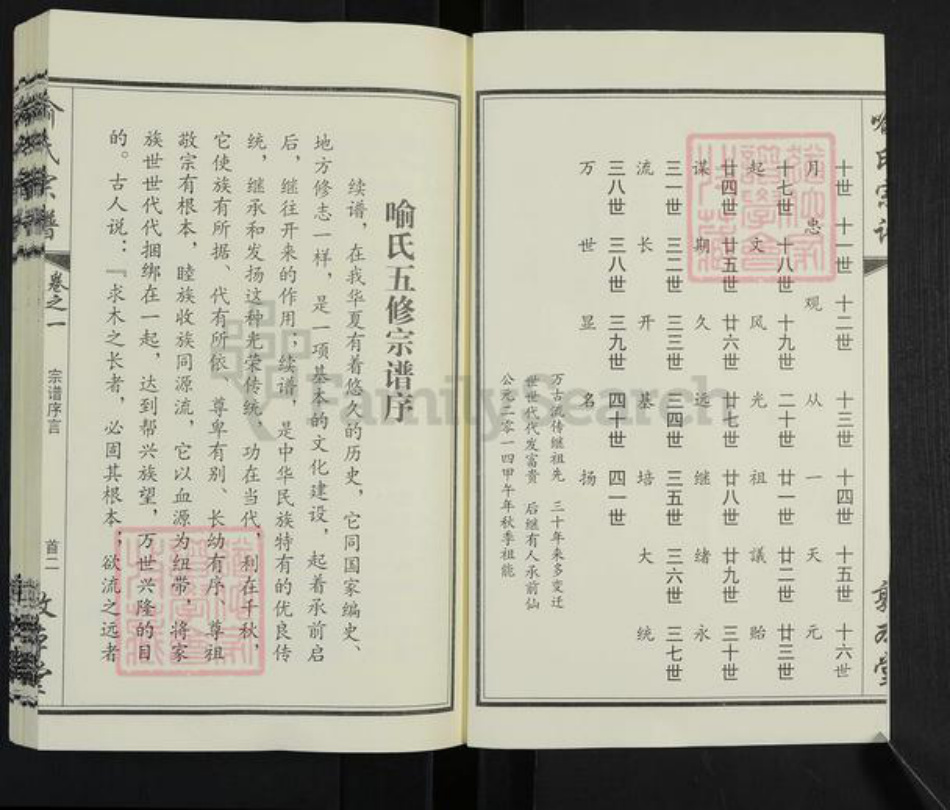 喻氏宗谱
十世 十一世 十二世 十三世 十四世 十五世 十六世
月 忠 观 从 一 天 元
十七世 十八世 十九世 二十世 廿一世 廿二世 廿三世
起 文 风 光 祖 議 贻
廿四世 廿五世 廿六世 廿七世 廿八世 廿九世 三十世
谋 期 久 远 继 绪 永
三一世 三二世 三三世 三四世 三五世 三六世 三七世
流 长 开 基 培 大 统
三八世 三八世 三九世 四十世 四一世
万 世 显 名 扬
万古流传继祖先 三十年来多变迁
世世代代发富贵 后继有人承前仙
公元二零一四甲午年秋季祖能
喻氏五修宗谱序
续谱，在我华夏有着悠久的历史，它同国家编史、
地方修志一样，是一项基本的文化建设，起着承前启
后，继往开来的作用；续谱，是中华民族特有的优良传
统，继承和发扬这种光荣传统，功在当代，利在千秋，
它使族有所据、代有所依、尊卑有别、长幼有序，尊祖
敬宗有根本，睦族收族同源流，它以血源为纽带，将家
族世世代代捆绑在一起，达到帮兴族望，万世兴隆的目
的。古人说：“求木之长者，必固其根本；欲流之远者
喻氏宗谱
卷之一
宗谱序言
首二
FamilySearch